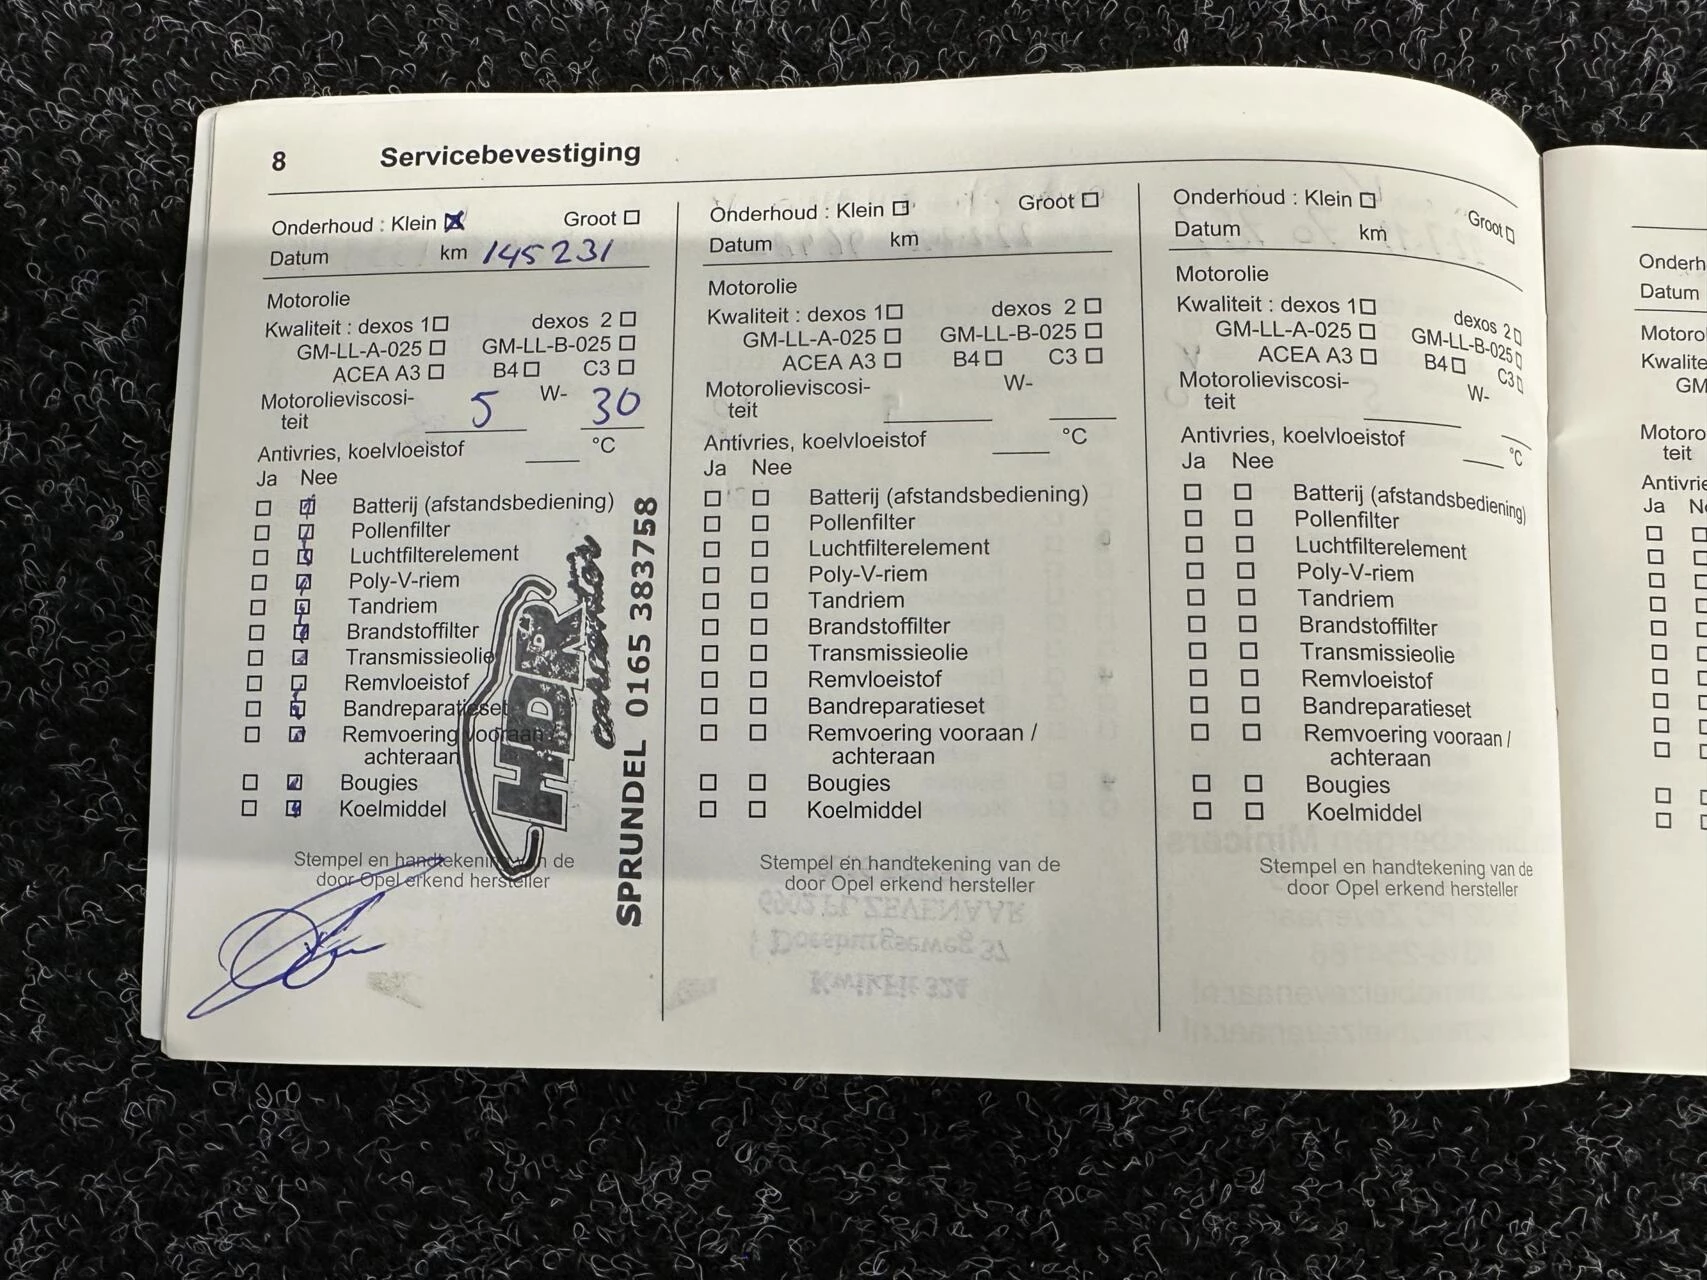 8 Servicebevestiging
Onderhoud : Klein ☒ Groot ☐
Datum km 145231
Motorolie
Kwaliteit : dexos 1 ☐ dexos 2 ☐
GM-LL-A-025 ☐ GM-LL-B-025 ☐
ACEA A3 ☐ B4 ☐ C3 ☐
Motorolieviscosi-
teit 5 W- 30
Antivries, koelvloeistof ____ °C
Ja Nee
Batterij (afstandsbediening)
Pollenfilter
Luchtfilterelement
Poly-V-riem
Tandriem
Brandstoffilter
Transmissieolie
Remvloeistof
Bandreparatieset
Remvoering vooraan /
achteraan
Bougies
Koelmiddel
HDR
carcenter
SPRUNDEL 0165 383758
Stempel en handtekening van de
door Opel erkend hersteller
Onderhoud : Klein ☐ Groot ☐
Datum km
Motorolie
Kwaliteit : dexos 1 ☐ dexos 2 ☐
GM-LL-A-025 ☐ GM-LL-B-025 ☐
ACEA A3 ☐ B4 ☐ C3 ☐
Motorolieviscosi-
teit W-
Antivries, koelvloeistof ____ °C
Ja Nee
Batterij (afstandsbediening)
Pollenfilter
Luchtfilterelement
Poly-V-riem
Tandriem
Brandstoffilter
Transmissieolie
Remvloeistof
Bandreparatieset
Remvoering vooraan /
achteraan
Bougies
Koelmiddel
Stempel en handtekening van de
door Opel erkend hersteller
Onderhoud : Klein ☐ Groot ☐
Datum km
Motorolie
Kwaliteit : dexos 1 ☐ dexos 2 ☐
GM-LL-A-025 ☐ GM-LL-B-025 ☐
ACEA A3 ☐ B4 ☐ C3 ☐
Motorolieviscosi-
teit W-
Antivries, koelvloeistof ____ °C
Ja Nee
Batterij (afstandsbediening)
Pollenfilter
Luchtfilterelement
Poly-V-riem
Tandriem
Brandstoffilter
Transmissieolie
Remvloeistof
Bandreparatieset
Remvoering vooraan /
achteraan
Bougies
Koelmiddel
Stempel en handtekening van de
door Opel erkend hersteller
Onderh
Datum
Motoro
Kwalite
GM
Motoro
teit
Antivrie
Ja